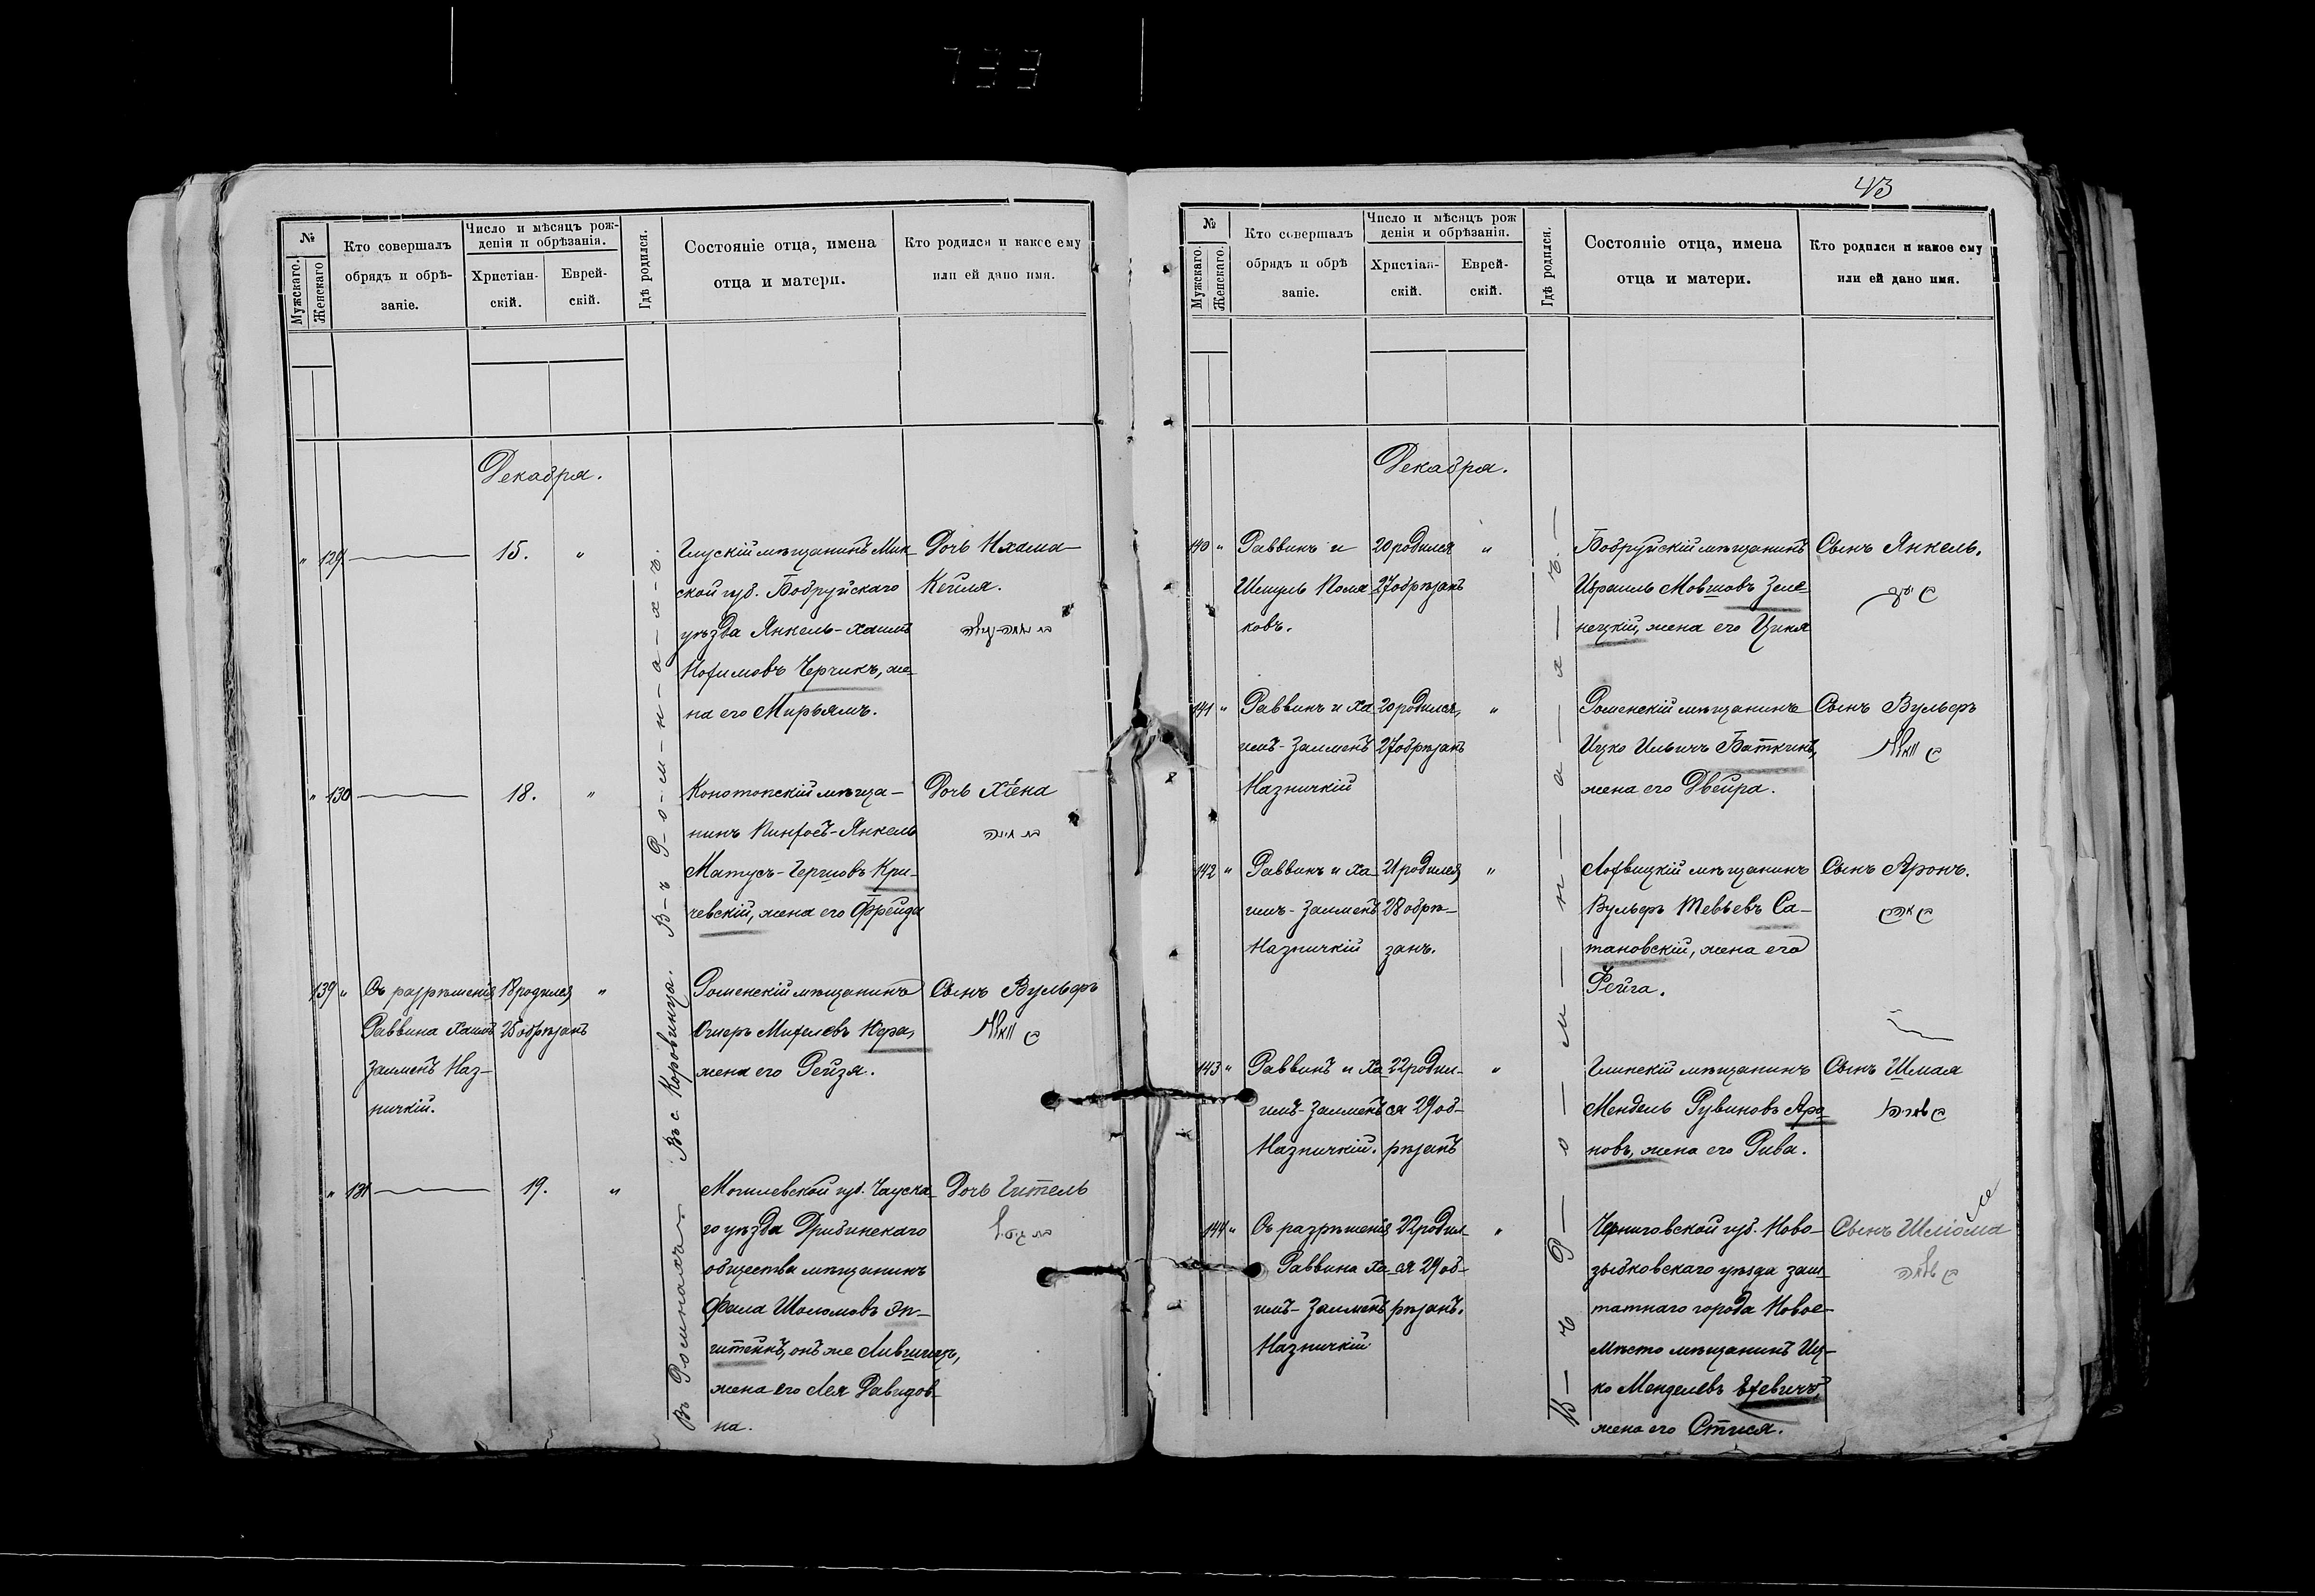 733
№
Мужскаго.
Женскаго
Кто совершалъ
обрядъ и обрѣ-
заніе.
Число и мѣсяцъ рож-
денія и обрѣзанія.
Христіан-
скій.
Еврей-
скій.
Гдѣ родился.
Состояніе отца, имена
отца и матери.
Кто родился и какое ему
или ей дано имя.
Декабря.
" 129
15. "
Глускій мѣщанинъ Мин-
ской губ. Бобруйскаго
уѣзда Янкель-Хаимъ
Нохимовъ Черчикъ, же-
на его Мирьямъ.
Дочь Нхама-
Кейля.
" 130
18. "
Конотопскій мѣща-
нинъ Пинхосъ-Янкель
Матусъ-Гершовъ Кри-
чевскій, жена его Фрейда
Дочь Хіена
В-ъ Р-о-м-н-а-х-ъ.
139 "
Съ разрѣшенія
Раввина Хаимъ
Залменъ Наз-
ничкій.
18 родился "
25 обрѣзанъ
Въ с. Коровинца.
Роменскій мѣщанинъ
Ошеръ Михелевъ Нора,
жена его Рейзя.
Сынъ Вульфъ
" 131
19. "
Въ Ромнахъ.
Могилевской губ. Чауска-
го уѣзда Дрибинскаго
общества мѣщанинъ
Фала Шоломовъ Эп-
штейнъ, онъ же Лившицъ,
жена его Лея Давидов-
на.
Дочь Гитель
43
№
Мужскаго.
Женскаго.
Кто совершалъ
обрядъ и обрѣ
заніе.
Число и мѣсяцъ рож
денія и обрѣзанія.
Христіан-
скій.
Еврей-
скій.
Гдѣ родился.
Состояніе отца, имена
отца и матери.
Кто родился и какое ему
или ей дано имя.
Декабря.
140 "
Раввинъ и
Шмуль Поля-
ковъ.
20 родился "
27 обрѣзанъ
Бобруйскій мѣщанинъ
Израиль Мовшовъ Зеле-
нецкій, жена его Ципа
Сынъ Янкель.
141 "
Раввинъ и Ха-
имъ-Залменъ
Назничкій
20 родился, "
27 обрѣзанъ
Роменскій мѣщанинъ
Ицко Ильичъ Баткинъ,
жена его Двейра.
Сынъ Вульфъ
142 "
Раввинъ и Ха-
имъ-Залменъ
Назничкій
21 родился "
28 обрѣ-
занъ.
Лохвицкій мѣщанинъ
Вульфъ Тевьевъ Са-
тановскій, жена его
Фейга.
Сынъ Аронъ.
143 "
Раввинъ и Ха-
имъ-Залменъ
Назничкій.
22 родил- "
ся 29 об-
рѣзанъ
Глинскій мѣщанинъ
Мендель Рувиновъ Аро-
новъ, жена его Рива.
Сынъ Шмая
144 "
Съ разрѣшенія
Раввина Ха-
имъ-Залменъ
Назничкій
22 родил- "
ся 29 об-
рѣзанъ.
В-ъ Р-о-м-н-а-х-ъ.-
Черниговской губ. Ново-
зыбковскаго уѣзда заш-
татнаго города Новое-
Мѣсто мѣщанинъ Иц-
ко Менделевъ Ехевичъ,
жена его Стися.
Сынъ Шлiома